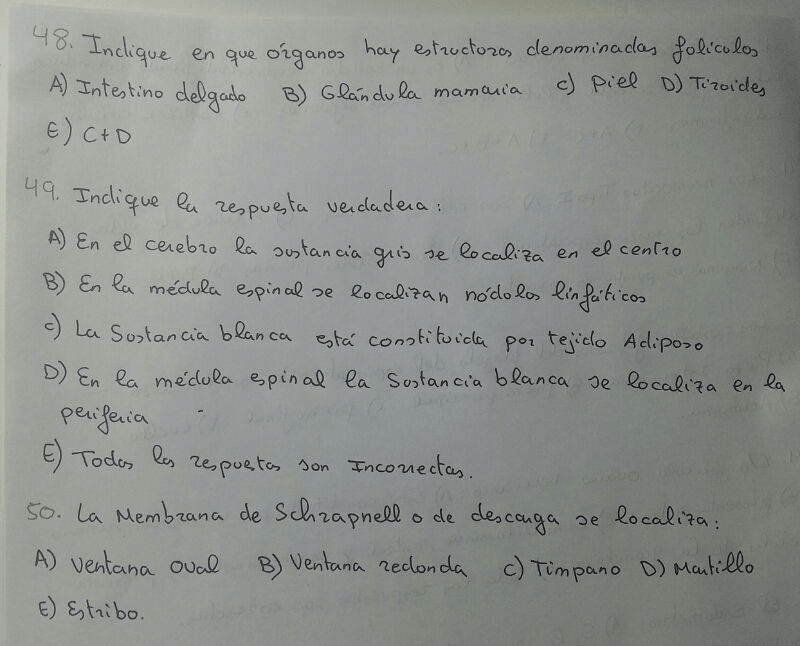 48. Indique en que órganos hay estructuras denominadas folículos
A) Intestino delgado B) Glándula mamaria c) Piel D) Tiroides
E) C+D
49. Indique la respuesta verdadera:
A) En el cerebro la sustancia gris se localiza en el centro
B) En la médula espinal se localizan nódulos linfáticos
c) La Sustancia blanca está constituida por tejido Adiposo
D) En la médula espinal la Sustancia blanca se localiza en la
periferia
E) Todas las respuestas son Incorrectas.
50. La Membrana de Schrapnell o de descarga se localiza:
A) Ventana oval B) Ventana redonda c) Timpano D) Martillo
E) Estribo.